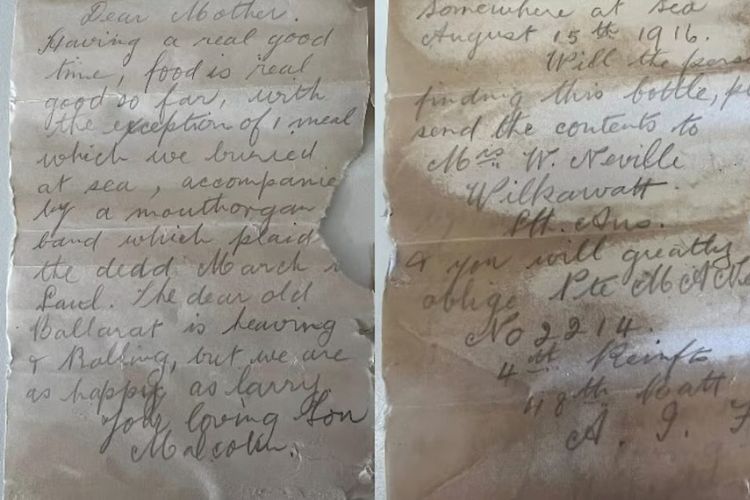 Dear Mother.
Having a real good
time, food is real
good so far, with
the exception of 1 meal
which we buried
at sea, accompanie
by a mouthorgan
band which plaid
the dedd March
Saul. The dear old
Ballarat is heaving
& Rolling, but we are
as happy as larry.
Your loving Son
Malcolm.
Somewhere at sea
August 15th 1916.
Will the perso
finding this bottle,
send the contents to
Mrs W. Neville
Wilkawatt.
Sth. Aus.
& you will greatly
oblige Pte M. A. N
No 2214.
4th Reinfts
48th Batt
A. I. F